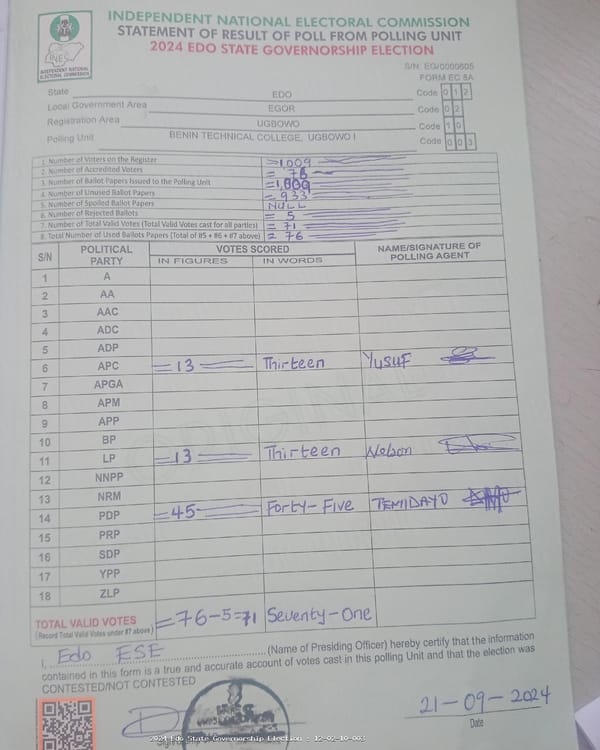 INDEPENDENT NATIONAL ELECTORAL COMMISSION
STATEMENT OF RESULT OF POLL FROM POLLING UNIT
2024 EDO STATE GOVERNORSHIP ELECTION
INEC
INDEPENDENT NATIONAL ELECTORAL COMMISSION
S/N: EG/0000605
FORM EC 8A
State EDO Code 0 1 2
Local Government Area EGOR Code 0 2
Registration Area UGBOWO Code 1 0
Polling Unit BENIN TECHNICAL COLLEGE, UGBOWO I Code 0 0 3
1. Number of Voters on the Register =1,009
2. Number of Accredited Voters = 76
3. Number of Ballot Papers Issued to the Polling Unit =1,009
4. Number of Unused Ballot Papers = 933
5. Number of Spoiled Ballot Papers NULL
6. Number of Rejected Ballots = 5
7. Number of Total Valid Votes (Total Valid Votes cast for all parties) = 71
8. Total Number of Used Ballots Papers (Total of #5 + #6 + #7 above) = 76
S/N POLITICAL PARTY VOTES SCORED NAME/SIGNATURE OF POLLING AGENT
IN FIGURES IN WORDS
1 A
2 AA
3 AAC
4 ADC
5 ADP
6 APC =13 Thirteen Yusuf
7 APGA
8 APM
9 APP
10 BP
11 LP =13 Thirteen Nelson
12 NNPP
13 NRM
14 PDP =45 Forty-Five TEMIDAYO
15 PRP
16 SDP
17 YPP
18 ZLP
TOTAL VALID VOTES =76-5=71 Seventy-One
(Record Total Valid Votes under #7 above)
I, Edo ESE (Name of Presiding Officer) hereby certify that the information
contained in this form is a true and accurate account of votes cast in this polling Unit and that the election was
CONTESTED/NOT CONTESTED
21-09-2024
Date
2024 Edo State Governorship Election : 12-02-10-003